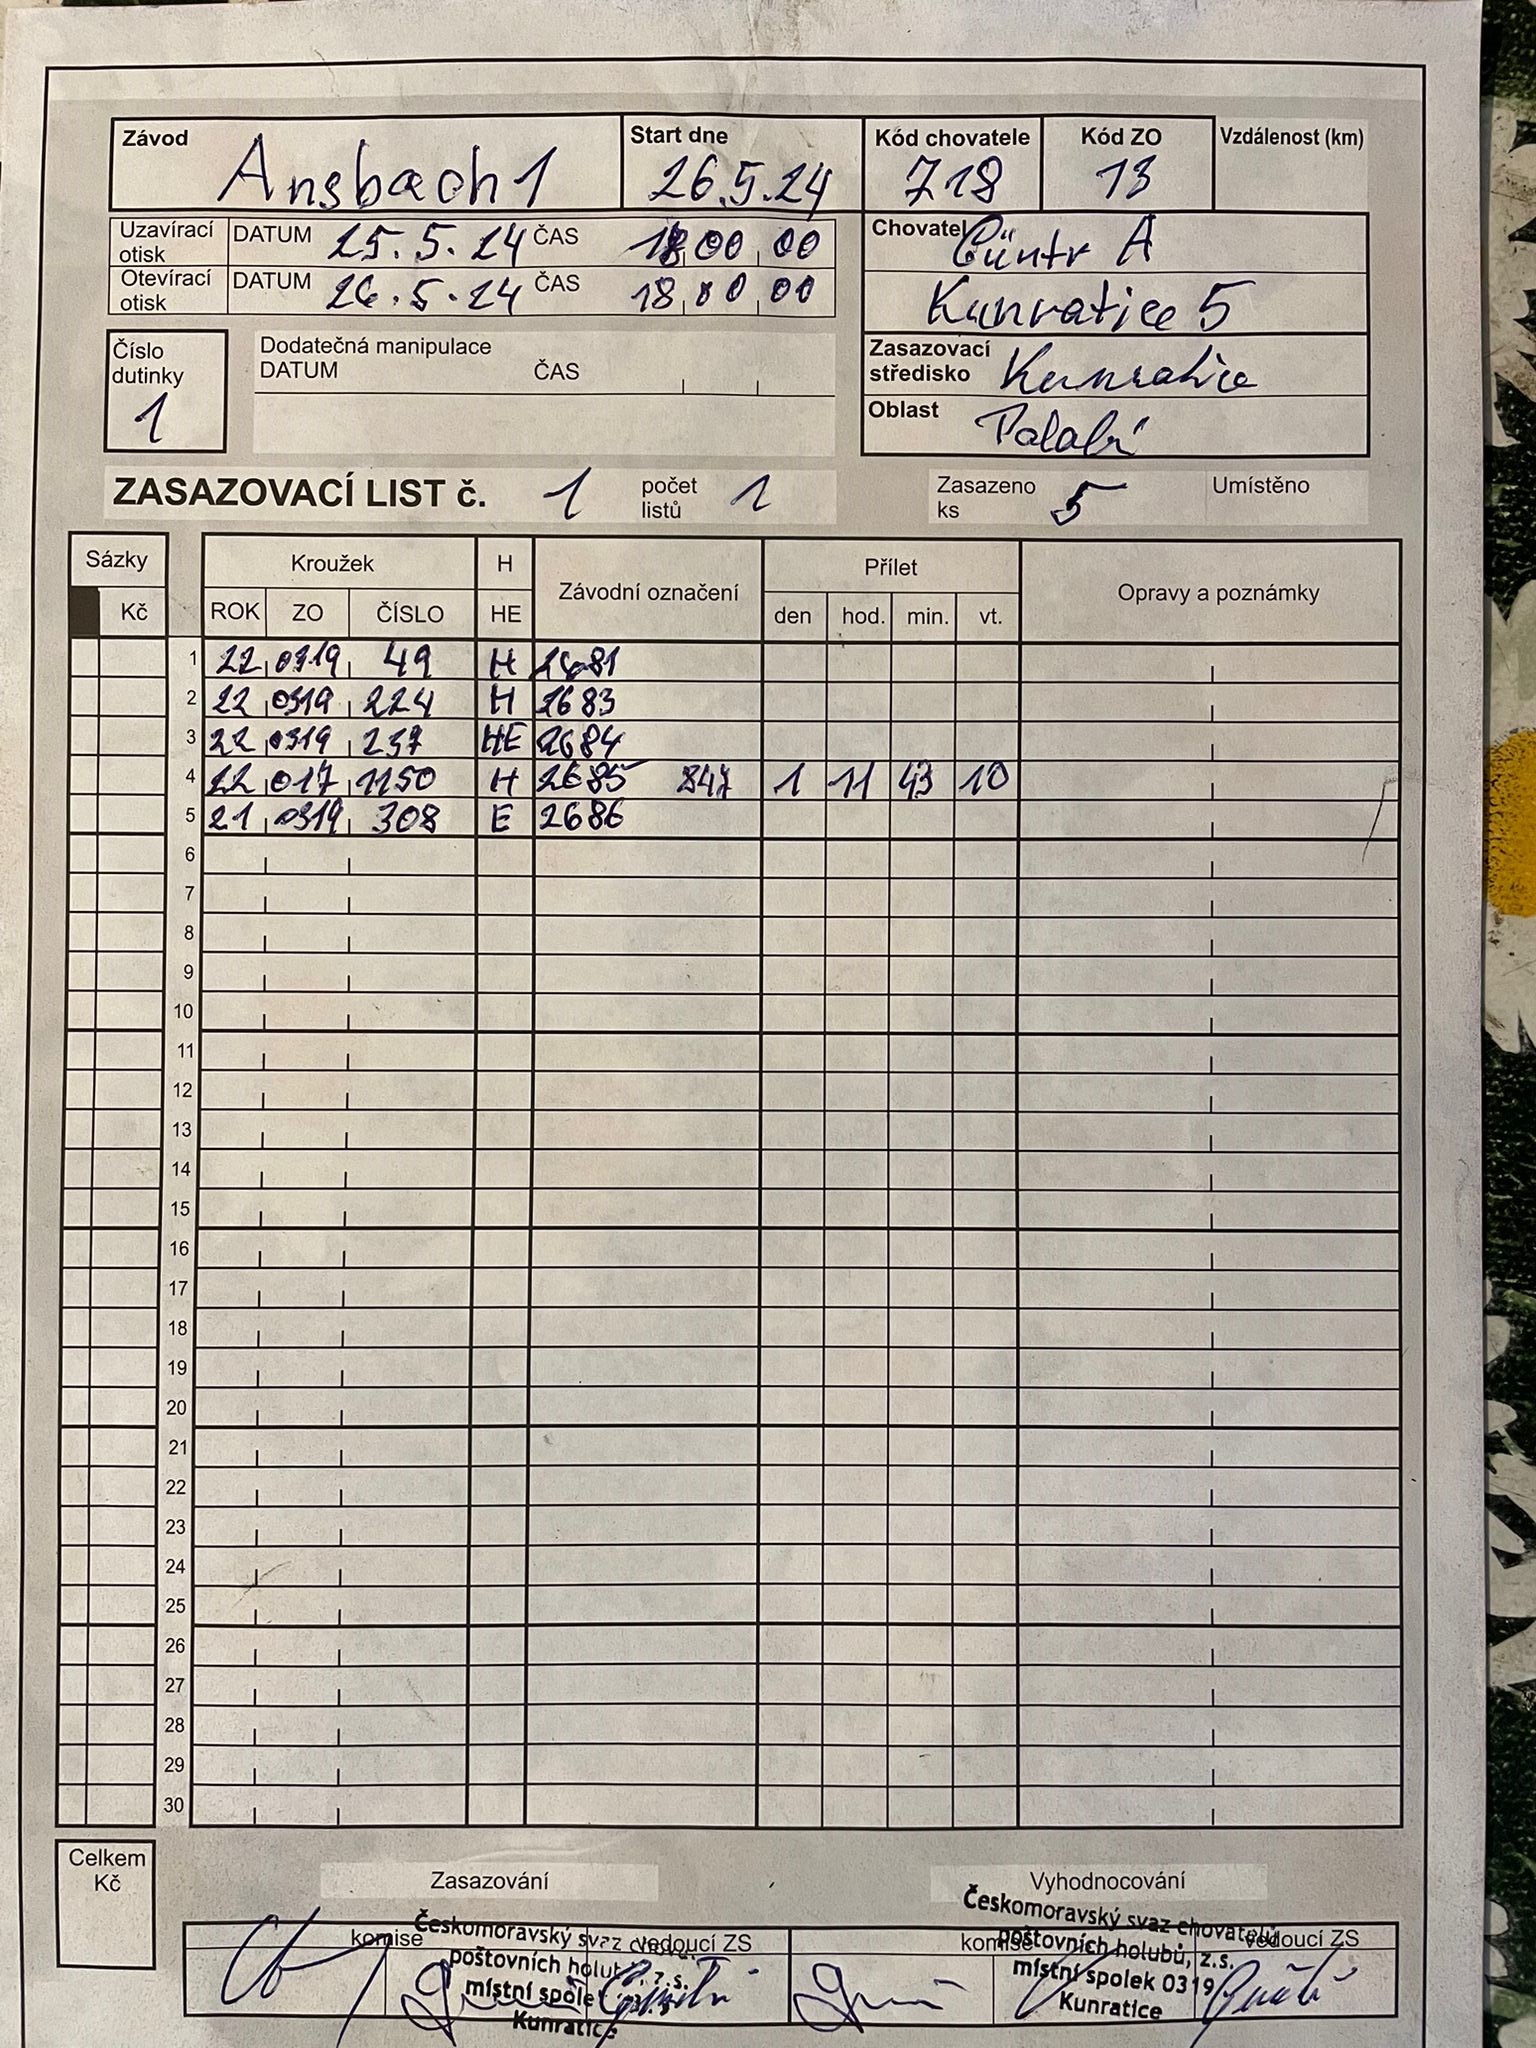 Závod Ansbach 1
Start dne 26.5.24
Kód chovatele 718
Kód ZO 13
Vzdálenost (km)
Uzavírací otisk DATUM 25.5.24 ČAS 18 00 00
Otevírací otisk DATUM 26.5.24 ČAS 18 00 00
Chovatel Güntr A
Kunratice 5
Zasazovací středisko Kunratice
Oblast Polabí
Číslo dutinky 1
Dodatečná manipulace
DATUM ČAS
ZASAZOVACÍ LIST č. 1 počet listů 1
Zasazeno ks 5 Umístěno
Sázky Kroužek H Závodní označení Přílet Opravy a poznámky
Kč ROK ZO ČÍSLO HE den hod. min. vt.
1 22 0319 49 H 2681
2 22 0319 224 H 2683
3 22 0319 237 HE 2684
4 22 017 1150 H 2685 847 1 11 43 10
5 21 0319 308 E 2686
6
7
8
9
10
11
12
13
14
15
16
17
18
19
20
21
22
23
24
25
26
27
28
29
30
Celkem Kč
Zasazování Vyhodnocování
komise vedoucí ZS komise vedoucí ZS
Českomoravský svaz
poštovních holubů, z.s.
místní spolek
Kunratice
Českomoravský svaz chovatelů
poštovních holubů, z.s.
místní spolek 0319
Kunratice